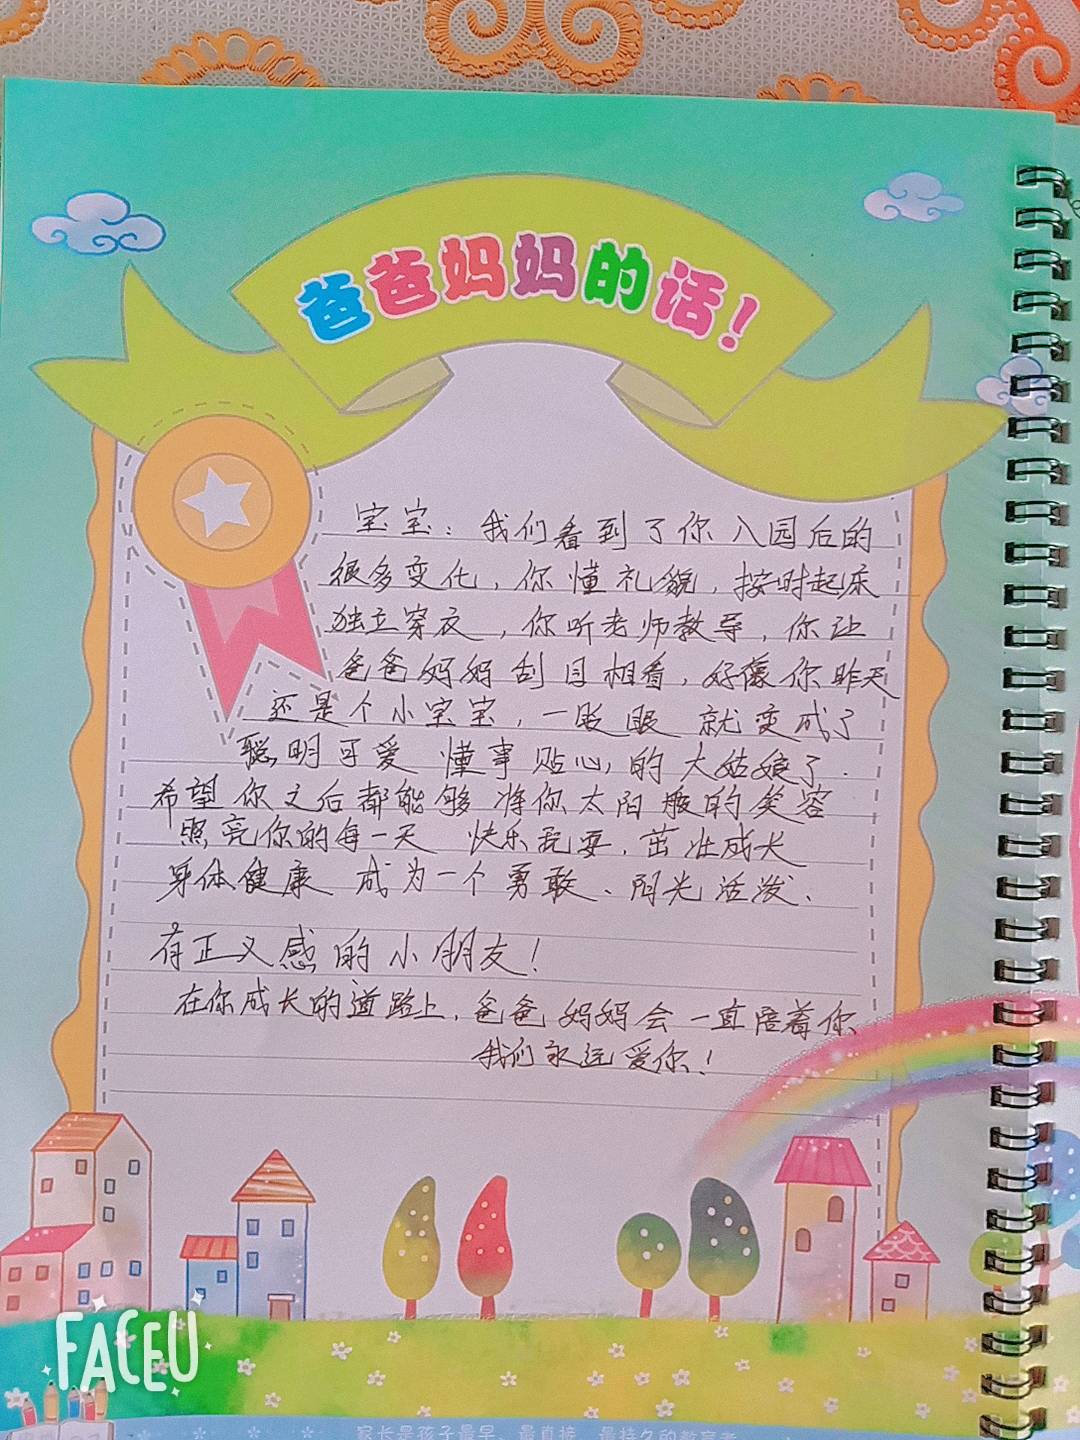 爸爸妈妈的话！
宝宝：我们看到了你入园后的
很多变化，你懂礼貌，按时起床
独立穿衣，你听老师教导，你让
爸爸妈妈刮目相看，好像你昨天
还是个小宝宝，一眨眼 就变成了
聪明可爱 懂事贴心的大姑娘了.
希望你之后都能够将你太阳般的笑容
照亮你的每一天 快乐玩耍，茁壮成长
身体健康 成为一个勇敢、阳光活泼、
有正义感的小朋友！
在你成长的道路上，爸爸妈妈会一直陪着你、
我们永远爱你！
FACEU
家长是孩子最早、最直接、最持久的教育者